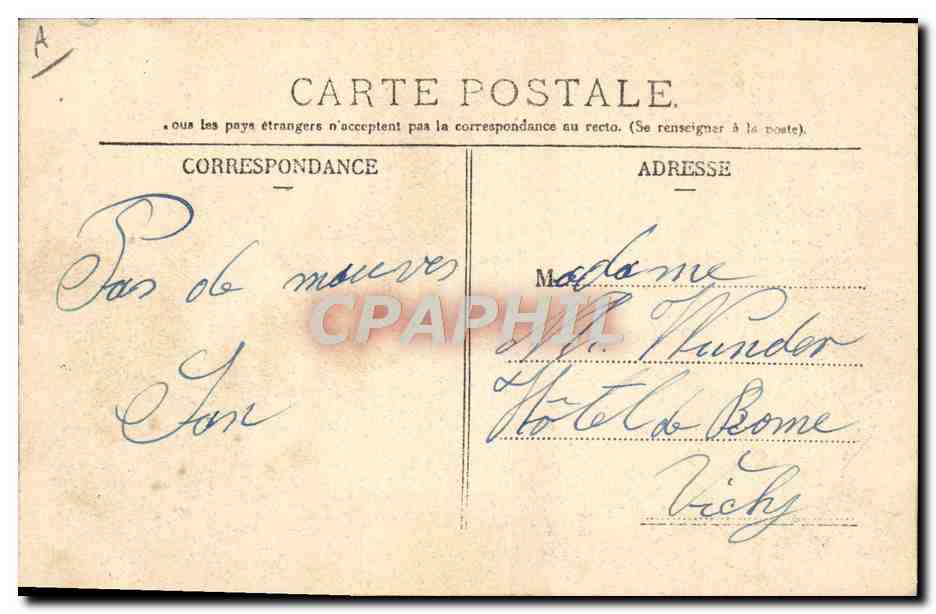 A
CARTE POSTALE.
ous les pays étrangers n'acceptent pas la correspondance au recto. (Se renseigner à la poste).
CORRESPONDANCE
ADRESSE
Pas de
Madame
M. Wunder
Hôtel de Rome
Vichy
CPAPHIL